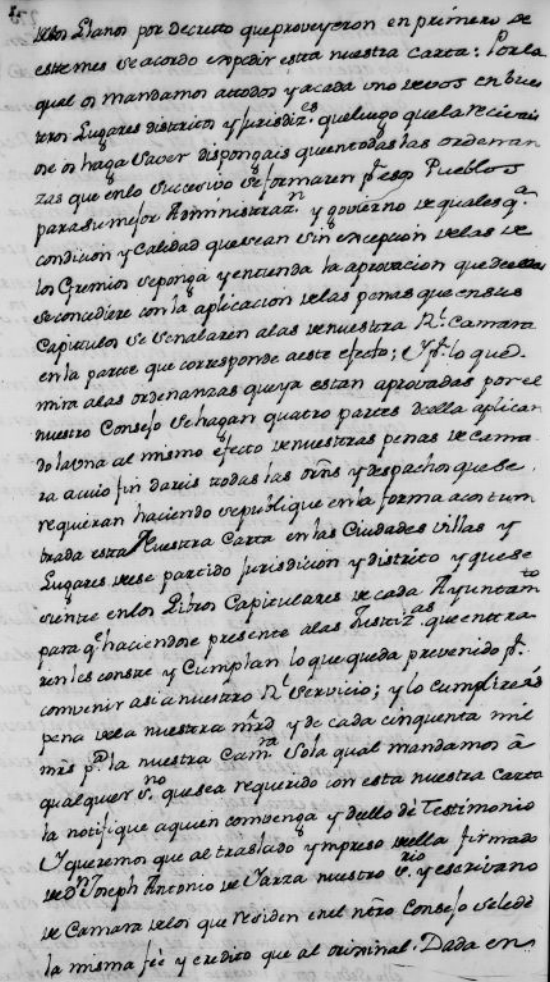 delos Llanos por decreto queproveyeron en primero de
estemes se acordo expedir esta nuestra carta: Porla
qual os mandamos atodos y acada uno devos en bues
teros Lugares distritos y jurisdiz.es queluego quela reciváis
se os haga saver dispongais queentodas las ordenan
zas que enlo succesivo seformaren p.r esos Pueblos
parasumejor Administraz.n y govierno de qualesq.a
condicion y Calidad quesean sin excepcion delas de
los Gremios seponga y entienda la aprovacion quedeellas
seconcediere con la aplicacion delas penas que ensus
Capitulos se señalaren alas denuestra R.l Camara
enla parte que corresponde aeste efecto; Y p.r lo que
mira alas ordenanzas queya estan aprovadas por el
nuestro Consejo sehagan quatro partes deella aplican
do launa al mismo efecto denuestras penas de cama
ra acuio fin dareis todas las orns y despachos quese
requieran haciendo sepublique enla forma acostum
brada esta Nuestra Carta en las Ciudades villas y
Lugares deese partido jurisdicion y distrito y quese
siente enlos Libros Capitulares de cada Ayuntam.to
para q.e haciendose presente alas Justiz.as que entra
ren les conste y Cumplan lo que queda prevenido p.r
convenir asi a nuestro R.l servicio; y lo cumplireis
pena dela nuestra mrd y de cada cinquenta mil
mrs p.a la nuestra Cam.ra Sola qual mandamos â
qualquier s.no quesea requerido con esta nuestra Carta
la notifique aquien combenga y deello dè Testimonio
Y queremos que al traslado ympreso deella firmado
de D.n Joseph Antonio de Yarza nuestro s.rio y escrivano
de Camara delos que residen enel ntro Consejo seledè
la misma feè y credito que al original. Dada en